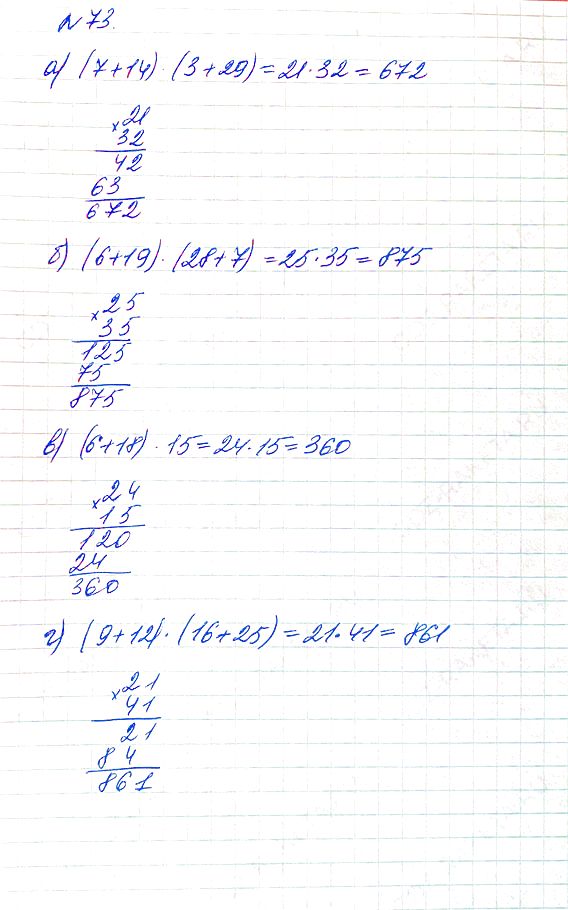 № 73.
а) (7+14) · (3+29) = 21·32 = 672
× 21
32
42
63
672
б) (6+19) · (28+7) = 25·35 = 875
× 25
35
125
75
875
в) (6+18) · 15 = 24·15 = 360
× 24
15
120
24
360
г) (9+12) · (16+25) = 21·41 = 861
× 21
41
21
84
861